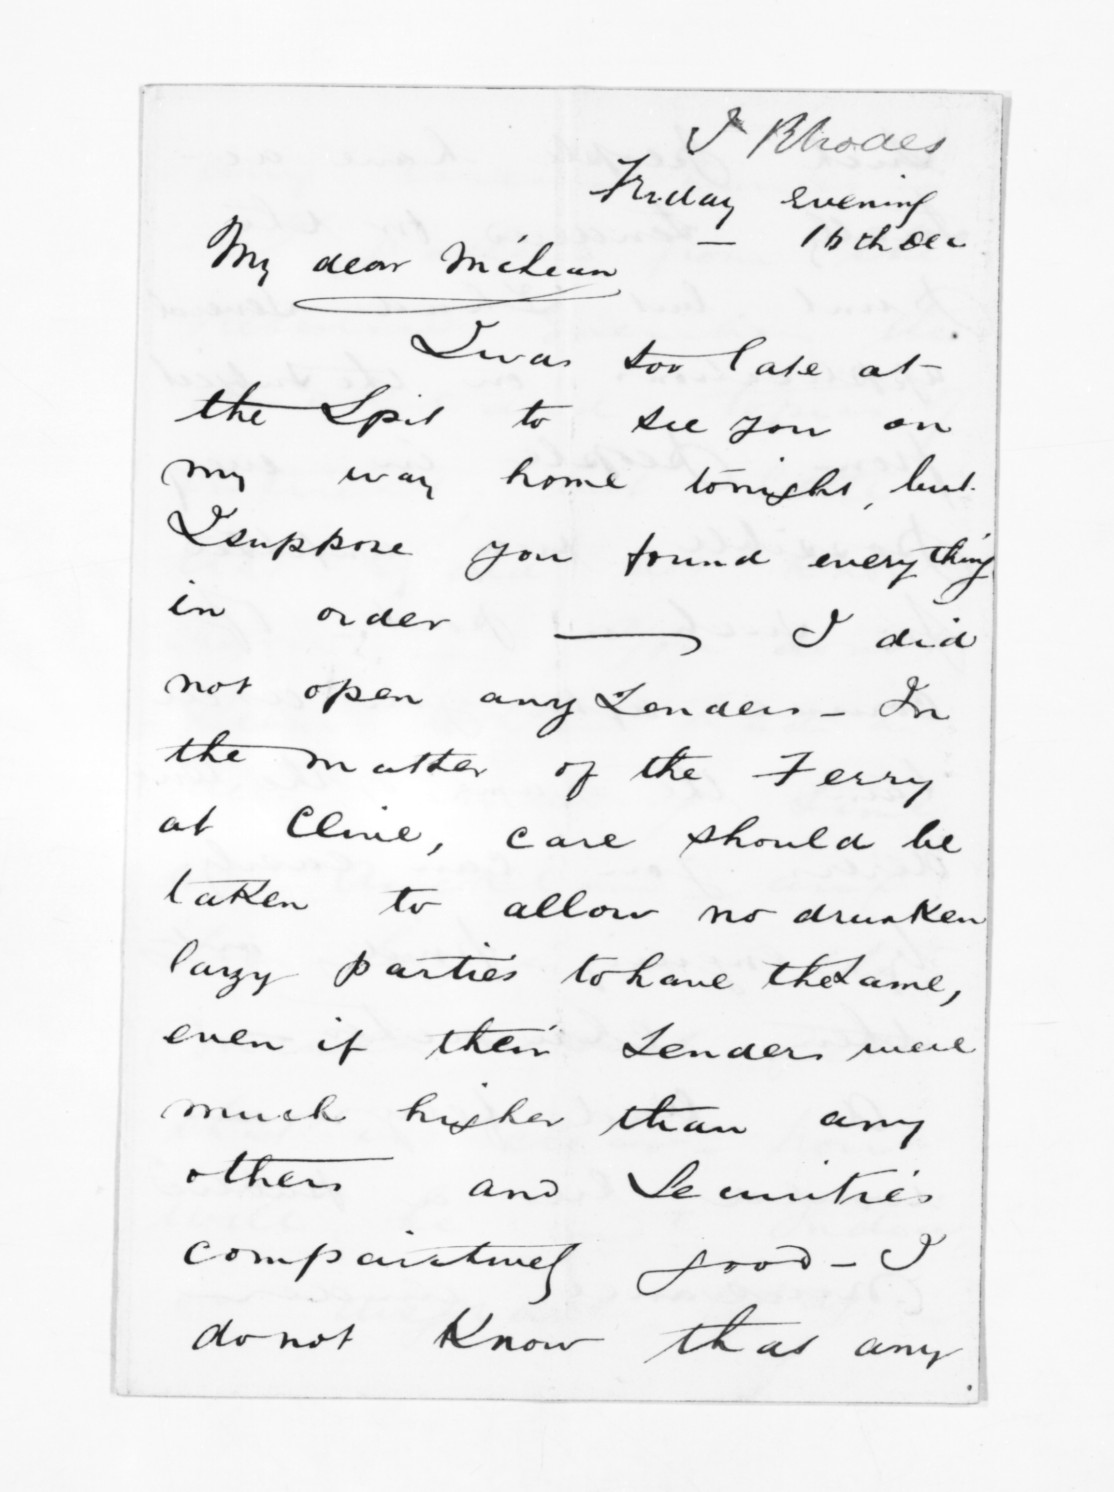 J Rhodes
Friday evening
— 16th Dec
My dear McLean
I was too late at
the Spit to see you on
my way home tonight, but
I suppose you found everything
in order — I did
not open any Tenders - In
the matter of the Ferry
at Clive, care should be
taken to allow no drunken
lazy parties to have the same,
even if their Tenders were
much higher than any
others and Securities
comparatively good - I
do not know that any